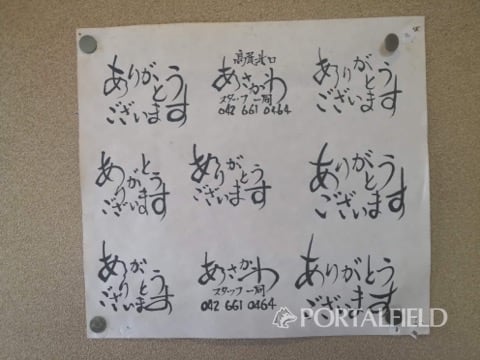 ありがとう
ございます
高尾北口
あさかわ
スタッフ一同
042 661 0464
ありがとう
ございます
ありがとう
ございます
ありがとう
ございます
ありがとう
ございます
ありがとう
ございます
あさかわ
スタッフ一同
042 661 0464
ありがとう
ございます
PORTALFIELD